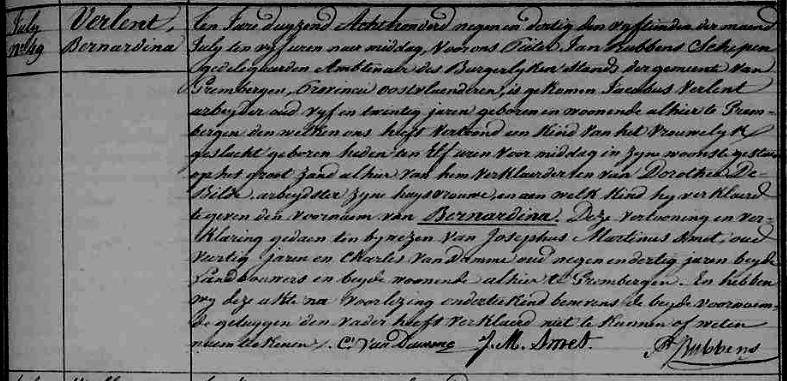 July
n° 49
Verlent,
Bernardina
Ten Jare duyzend Achthonderd negen en dertig den vyftienden der maend
July ten vyf uren naer middag, Voor ons Pieter Jan Rubbens Schepen
gedelegueerden Ambtenaer des Burgerlyken stand der gemeente van
Grembergen, Provincie oostvlaenderen, is gekomen Jacobus Verlent
arbeyder oud vyf en twintig jaren geboren en woonende alhier te Grem=
bergen den welken ons heeft vertoond een Kind van het Vrouwelyk
geslacht geboren heden ten Elf uren voor middag in zyne wooninste gestaen
op het groot Zand alhier van hem verklaerder en van Dorothea De
Bilde, arbeydster zyne huysvrouwe, en aen welk Kind hy verklaerd
te geven den voornaem van Bernardina. Deze vertooning en ver-
klaring gedaen ten bywezen van Josephus Martinus Smet, oud
Veertig jaren en Charles Van Damme oud negen en dertig jaren beyde
Landbouwers en beyde woonende alhier te Grembergen. En hebben
wy deze akte na voorlezing onderteekend benevens de beyde voornoem-
de getuygen den vader heeft verklaerd niet te kunnen of weten
naemteekenen /. C. Van Damme J. M. Smet. Rubbens